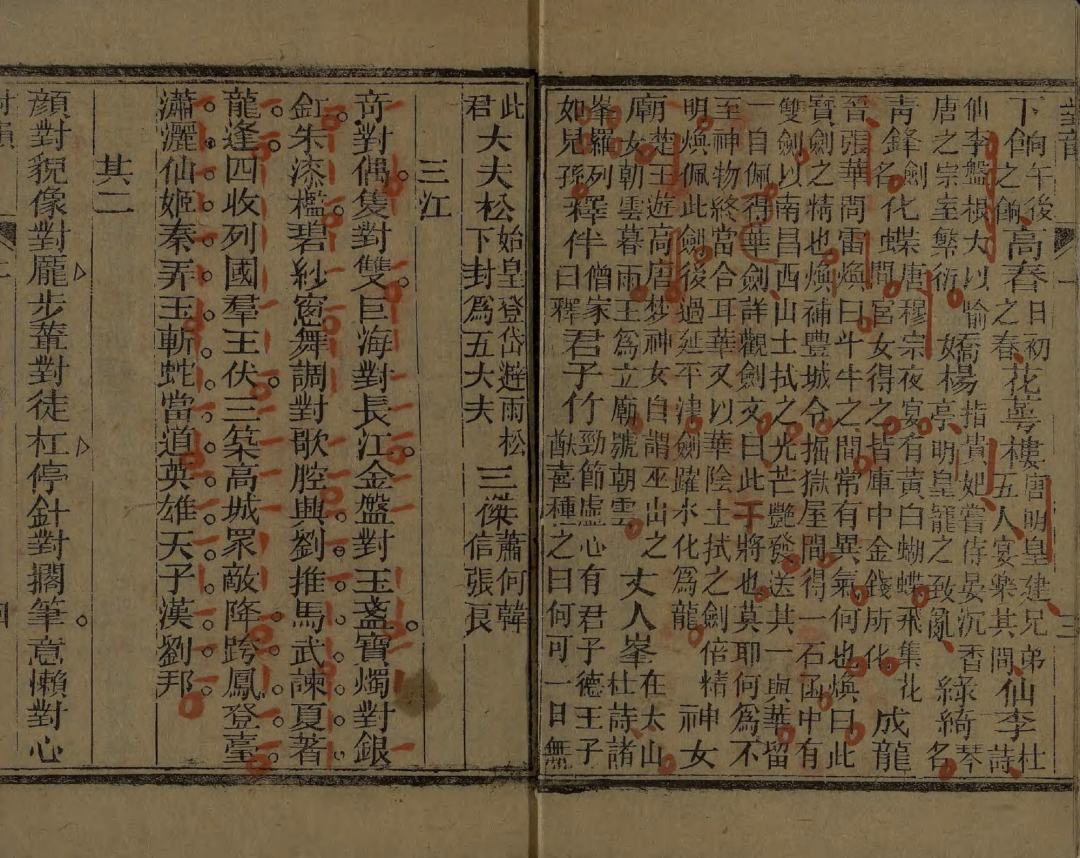 下餉午後之餉高舂日初之舂花萼樓唐明皇建兄弟五人宴樂其間仙李杜詩
仙李盤根大以喻唐之宗室繁衍驕楊指貴妃嘗侍宴沉香亭明皇寵之致亂綠綺琴名
青鋒劍名化蝶唐穆宗夜宴有黃白蝴蝶飛集花間宮女得之皆庫中金錢所化成龍
晉張華問雷煥曰斗牛之間常有異氣何也煥曰此寶劍之精也煥補豐城令掘獄屋間得一石函中有
雙劍以南昌西山土拭之光芒艷發送其一與華留一自佩得華劍詳觀劍文曰此干將也莫耶何為不
至神物終當合耳華又以華陰土拭之劍倍精明煥佩此劍後過延平津劍躍水化為龍神女
廟楚王遊高唐夢神女自謂巫山之女朝雲暮雨王為立廟號朝雲丈人峯在太山杜詩諸
峯羅列如兒孫釋伴僧家曰釋君子竹勁節虛心有君子德王子猷喜種之曰何可一日無
此君大夫松始皇登岱避雨松下封爲五大夫三傑蕭何韓信張良
三江
竒對偶隻對雙巨海對長江金盤對玉盞寶燭對銀
釭朱漆檻碧紗窻舞調對歌腔興劉推馬武諫夏著
龍逢四收列國羣王伏三築高城眾敵降跨鳳登臺
瀟灑仙姬秦弄玉斬蛇當道英雄天子漢劉邦
其二
顏對貌像對龐步輦對徒杠停針對擱筆意懶對心